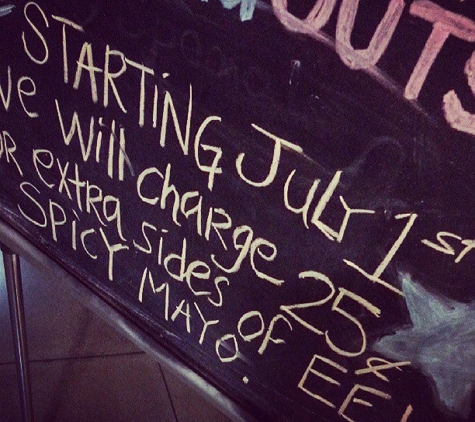 OUTS
STARTiNG JULY 1ST
We Will chaRge 25¢
OR extRa sides oF EEL
SPicY MAYO.